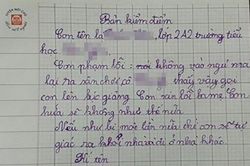 Bản kiểm điểm
Con tên là lớp 2A2 trường tiểu
học
Con phạm lỗi: không vào ngủ mà
lại ra sân chơi cô thấy vậy gọi
con lên bục giảng Con xin lỗi ba mẹ Con
hứa sẽ không như thế nữa
Nếu như bị một lần nữa thì con sẽ tự
giác ra khỏi nhà và đi ở nhà khác
Kí tên